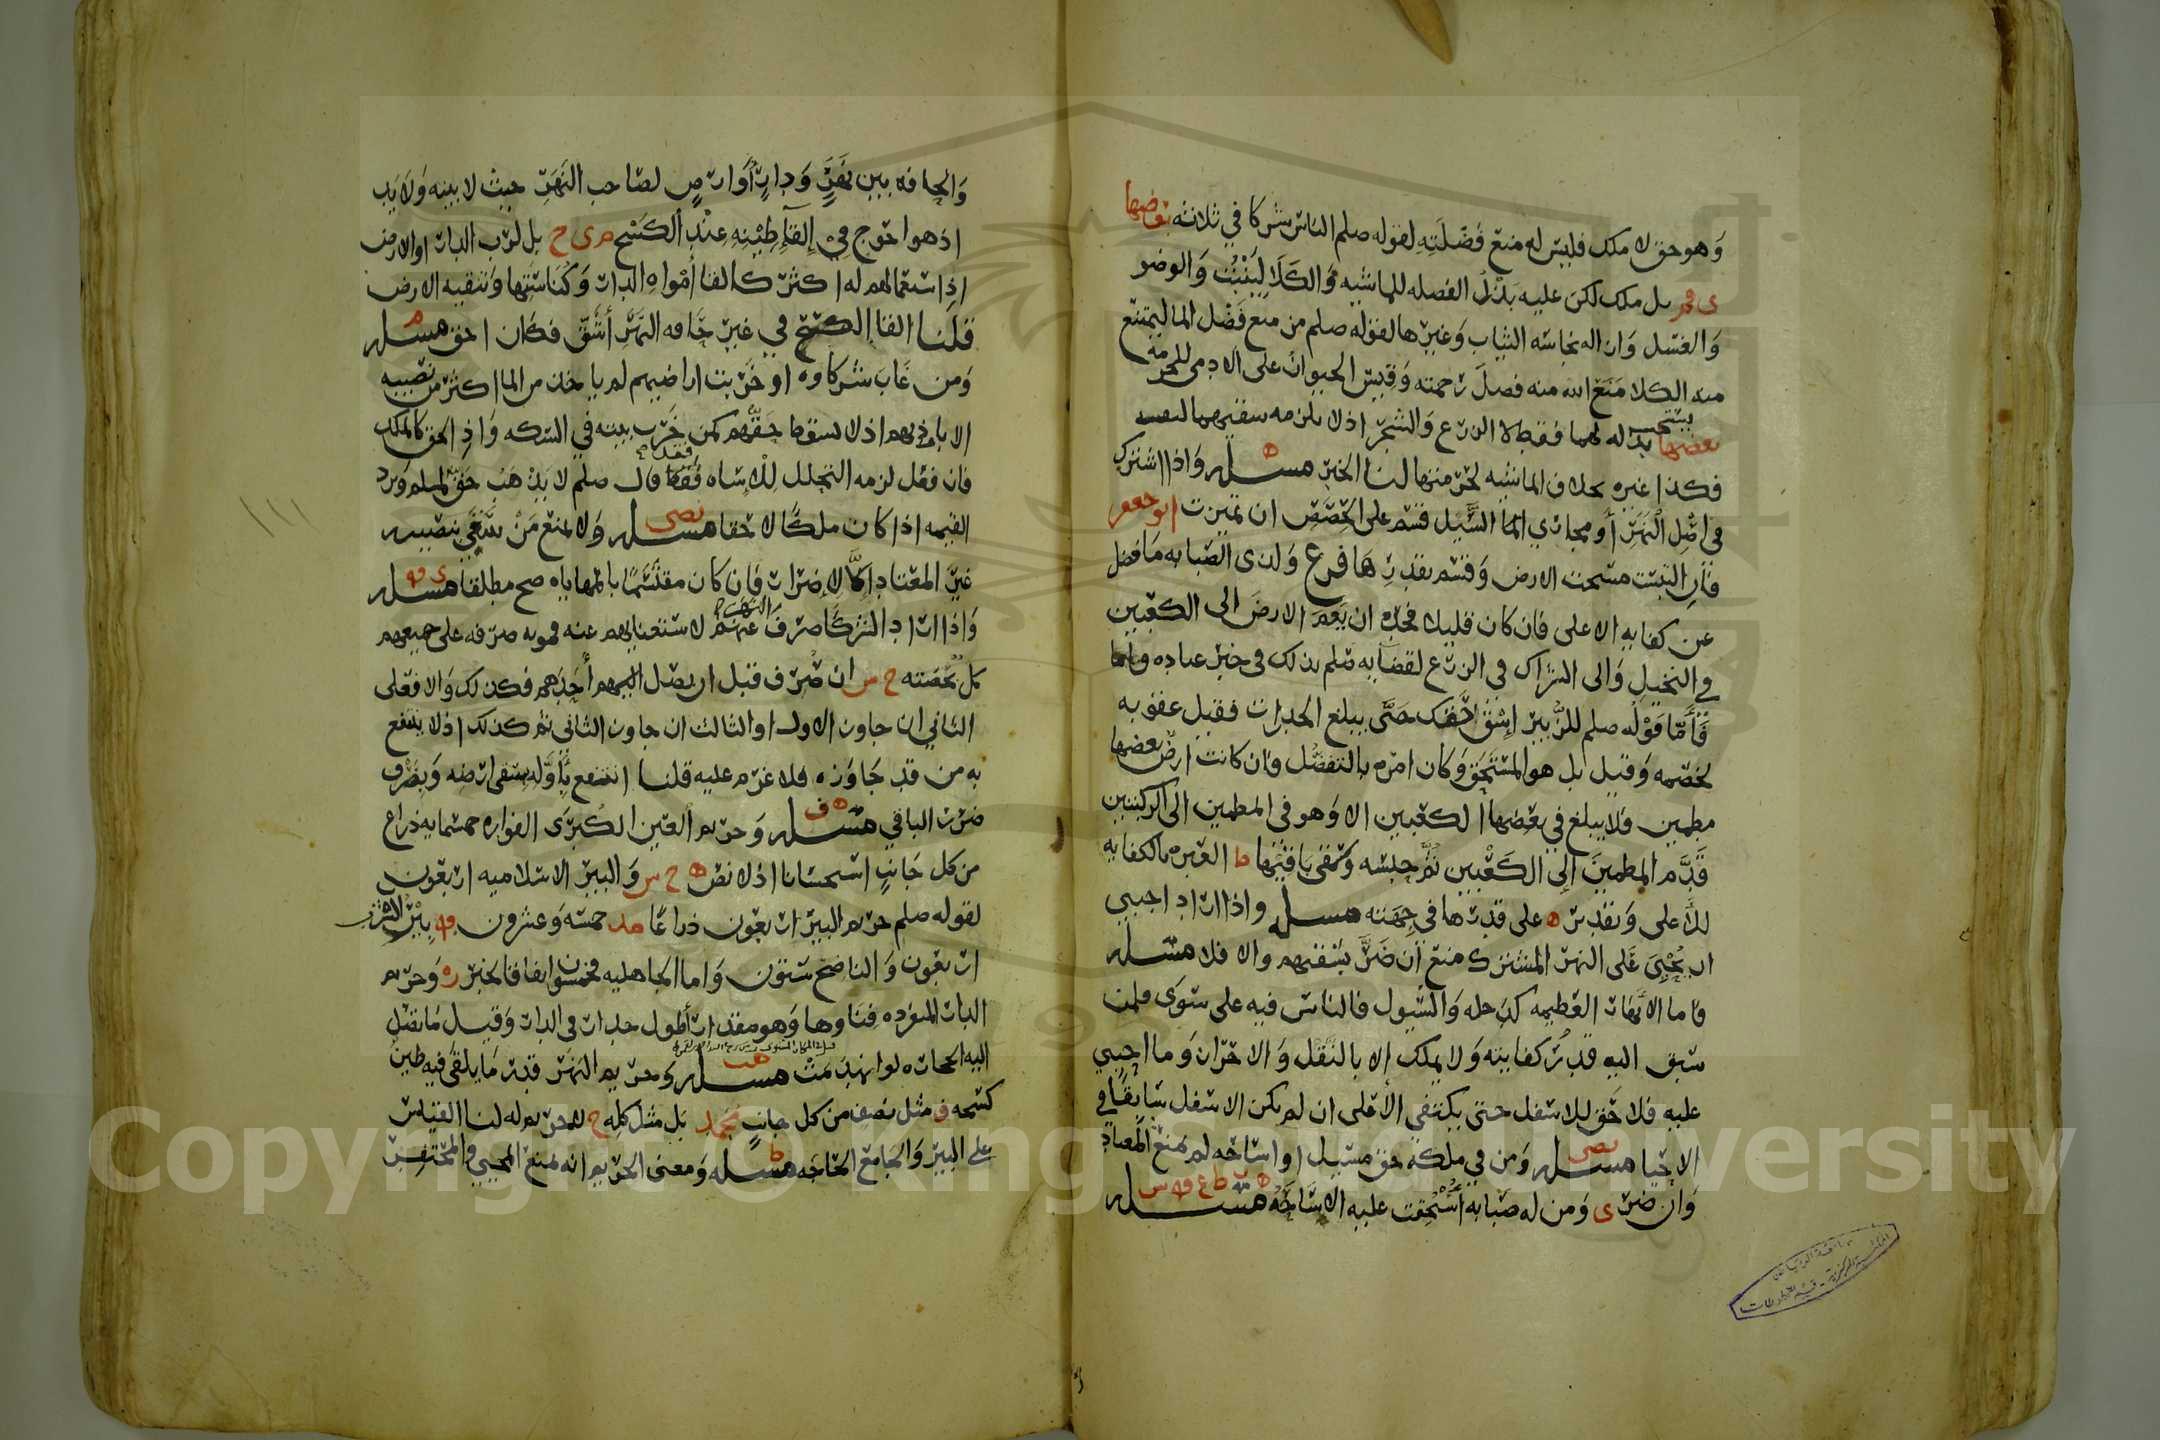 وهو حق لا ملك فليس له منع فضلته لقوله صلم الناس شركا في ثلاثة بعاضها
ى بل ملك لكن عليه بذل الفضله للماشيه والكلا لينبت والوضو
والغسل وازاله نجاسه الثياب وغيرها لقوله صلم من منع فضل الما ليمتنع
به الكلا منع الله منه فضل رحمته وقيس الحيوان على الادمى للحرمه
بعضها يستحب بذله لهما فقط لا الزرع والشجر اذ لا يلزمه سقيهما لنفسه
فكذا غيره بخلاف الماشيه لحرمتها لنا الخبر مسله واذا اشترك
في اصل النهر او مجاري الما السيل قسم على الحصص ان تميزت ابو جعفر
فان التبست مسحت الارض وقسم بقدرها فرع ولذى الصبابه ما فضل
عن كفايه الاعلى فان كان قليلا فحده ان يعم الارض الى الكعبين
في النخيل والى الشراك في الزرع لقضايه صلم بذلك في خبر عباده
فاما قوله صلم للزبير اسق حتى يبلغ الجدرات فقيل عقوبه
لخصمه وقيل بل هو المستحق وكان امره بالتفضل وان كانت ارض بعضها
مطمين فلا يبلغ في بعضها الكعبين الا وهو في المطمين الى الركبتين
قدم المطمين الى الكعبين ثم حبسه وسقى باقيها ط العبره بالكفايه
للاعلى وتقدير ه على قدرها في جهته مسله واذا اراد اجنبي
ان يحيي على النهر المشترك منع ان ضر بسقيهم والا فلا مسله
فاما الانهار العظيمه كدجله والسيول فالناس فيه على سوى فلمن
سبق اليه قدر كفايته ولا يملك الا بالنقل والاحراز وما احيي
عليه فلا حق للاسفل حتى يكتفي الاعلى ان لم يكن الاسفل سابقا في
الاحيا مسله ومن في ملكه حق مسيل او اساحه لم يمنع المعتاد
وان ضر ى ومن له صبابه استحقت عليه الاساحه مسله
والحافه بين نهر ودار او ارض لصاحب النهر حيث لا بينه ولا يد
اذ هو احوج في القا طينه عند الكسح م ى ح بل لرب الدار او الارض
اذ استعمالهم له اكثر كالقا امواه الدار وكناستها وتنقيه الارض
قلنا القا الكسح في غير حافه النهر اشق فكان احق مسله
ومن غاب شركاوه او خربت اراضيهم لم ياخذ من الما اكثر من نصيبه
الا باذنهم اذ لا يسقط حقهم كمن خرب بيته في السكه واذ الحق كالملك
فان فعل لزمه التحلل للاساه فقط قال صلم لا يذهب حق المسلم ويرد
القيمه اذا كان ملكا لا حقا مسله ولا يمنع من سقي بنصيبه
غير المعتاد الا لاضرار فان كان مقتسما بالمهاياه صح مطلقا مسله
واذا اراد الشركا صرف النهر عنهم لاستغنايهم عنه فمونه صرفه على جميعهم
كل بحصته ح س ان صرف قبل ان يصل اليهم احدهم فكذلك والا فعلى
الثاني ان جاوز الاول او الثالث ان جاوز الثاني ثم كذلك اذ لا ينتفع
به من قد جاوزه فلا غرم عليه قلنا انتفع باوله سقى ارضه وبصرف
ضرر الباقي مسله وحريم العين الكبرى الفواره خمسمايه ذراع
من كل جانب استحسانا اذ لا نص ه ح س والبير الاسلاميه اربعون
لقوله صلم حريم البير اربعون ذراعا خمسه وعشرون بير الشرب
اربعون والناضح ستون واما الجاهليه فخمسون ايضا فالخبر ره وحريم
الدار المنفرده فناوها وهو مقدار اطول جدار في الدار وقيل ما تصل
اليه الحجاره لو انهدمت مسله وحريم النهر قدر ما يلقى فيه طين
كسحه ف مثل نصفه من كل جانب محمد بل مثل كله ح لا حريم له لنا القياس
على البير والجامع الحاجه مسله ومعنى الحريم انه يمنع المحيي والمحتفر